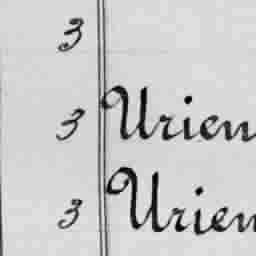 3
3 Urien
3 Urien